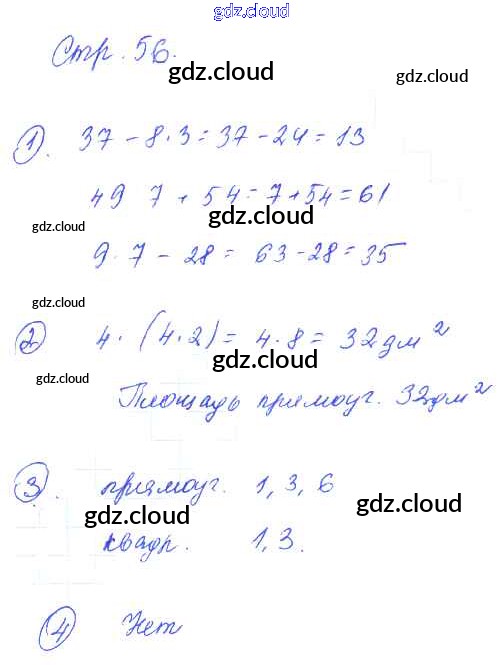 gdz.cloud
Стр. 56.
gdz.cloud gdz.cloud
1). 37 - 8·3 = 37 - 24 = 13
49 7 + 54 = 7 + 54 = 61
gdz.cloud gdz.cloud
9·7 - 28 = 63 - 28 = 35
gdz.cloud
2) 4·(4·2) = 4·8 = 32дм²
gdz.cloud gdz.cloud
Площадь прямоуг. 32дм²
3). прямоуг. 1, 3, 6
gdz.cloud gdz.cloud
квадр. 1, 3.
4) Нет